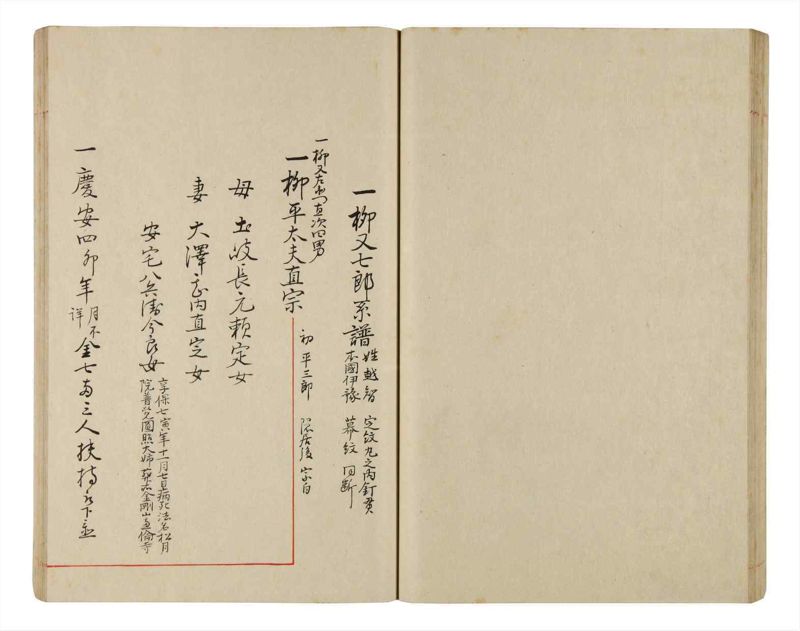 一柳又七郎系譜
姓越智 定紋丸之内釘貫
本國伊豫 幕紋 同断
一柳又左衛門直次四男
一柳平太夫直宗
初 平三郎 隠居後 宗白
母 土岐長元頼定女
妻 大澤主内直定女
安宅八兵衛今良女
享保七寅年十一月七日病死法名松月
院普覚圓照大姉葬于金剛山遍倫寺
一慶安四卯年月不詳金七両三人扶持被下置